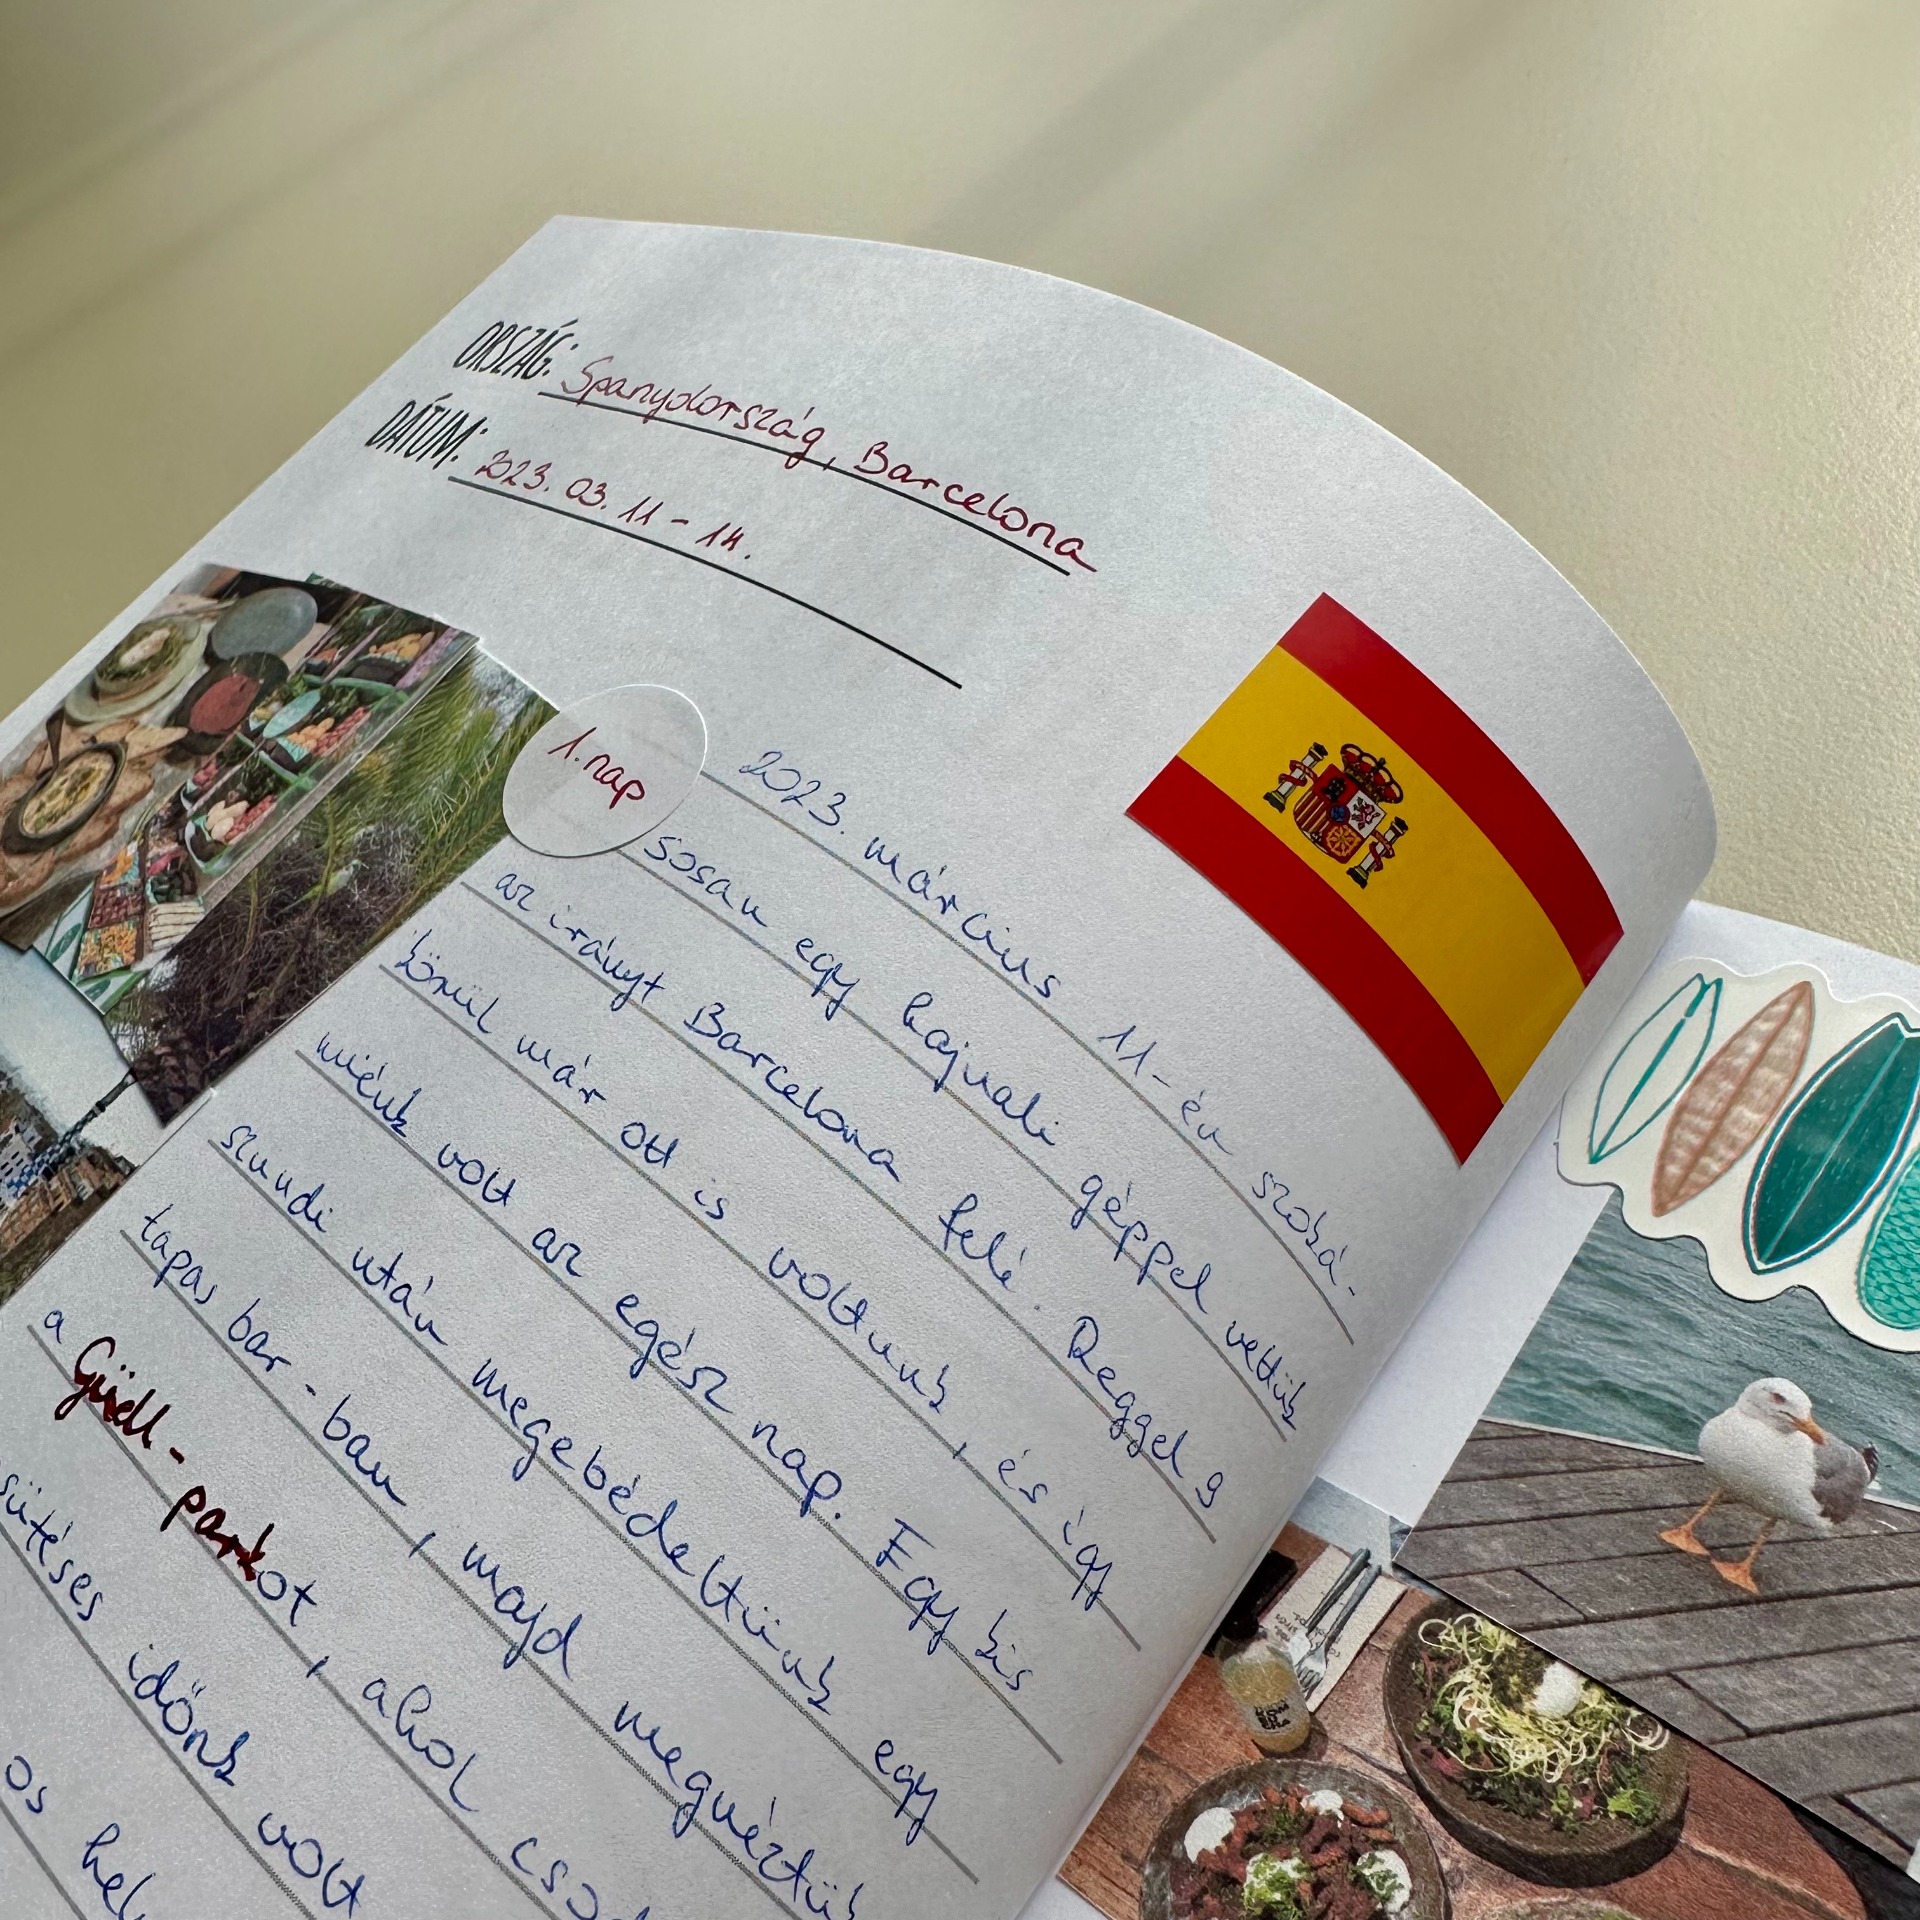 ORSZÁG: Spanyolország, Barcelona
DÁTUM: 2023. 03. 11 - 14.
1. nap
2023. március 11-én szobá-
sosan egy hajnali géppel vettük
az irányt Barcelona felé. Reggel 9
körül már ott is voltunk, és így
miénk volt az egész nap. Egy kis
szundi után megebédeltünk egy
tapas bar-ban, majd megnéztük
a Güell-parkot, ahol
idönk volt